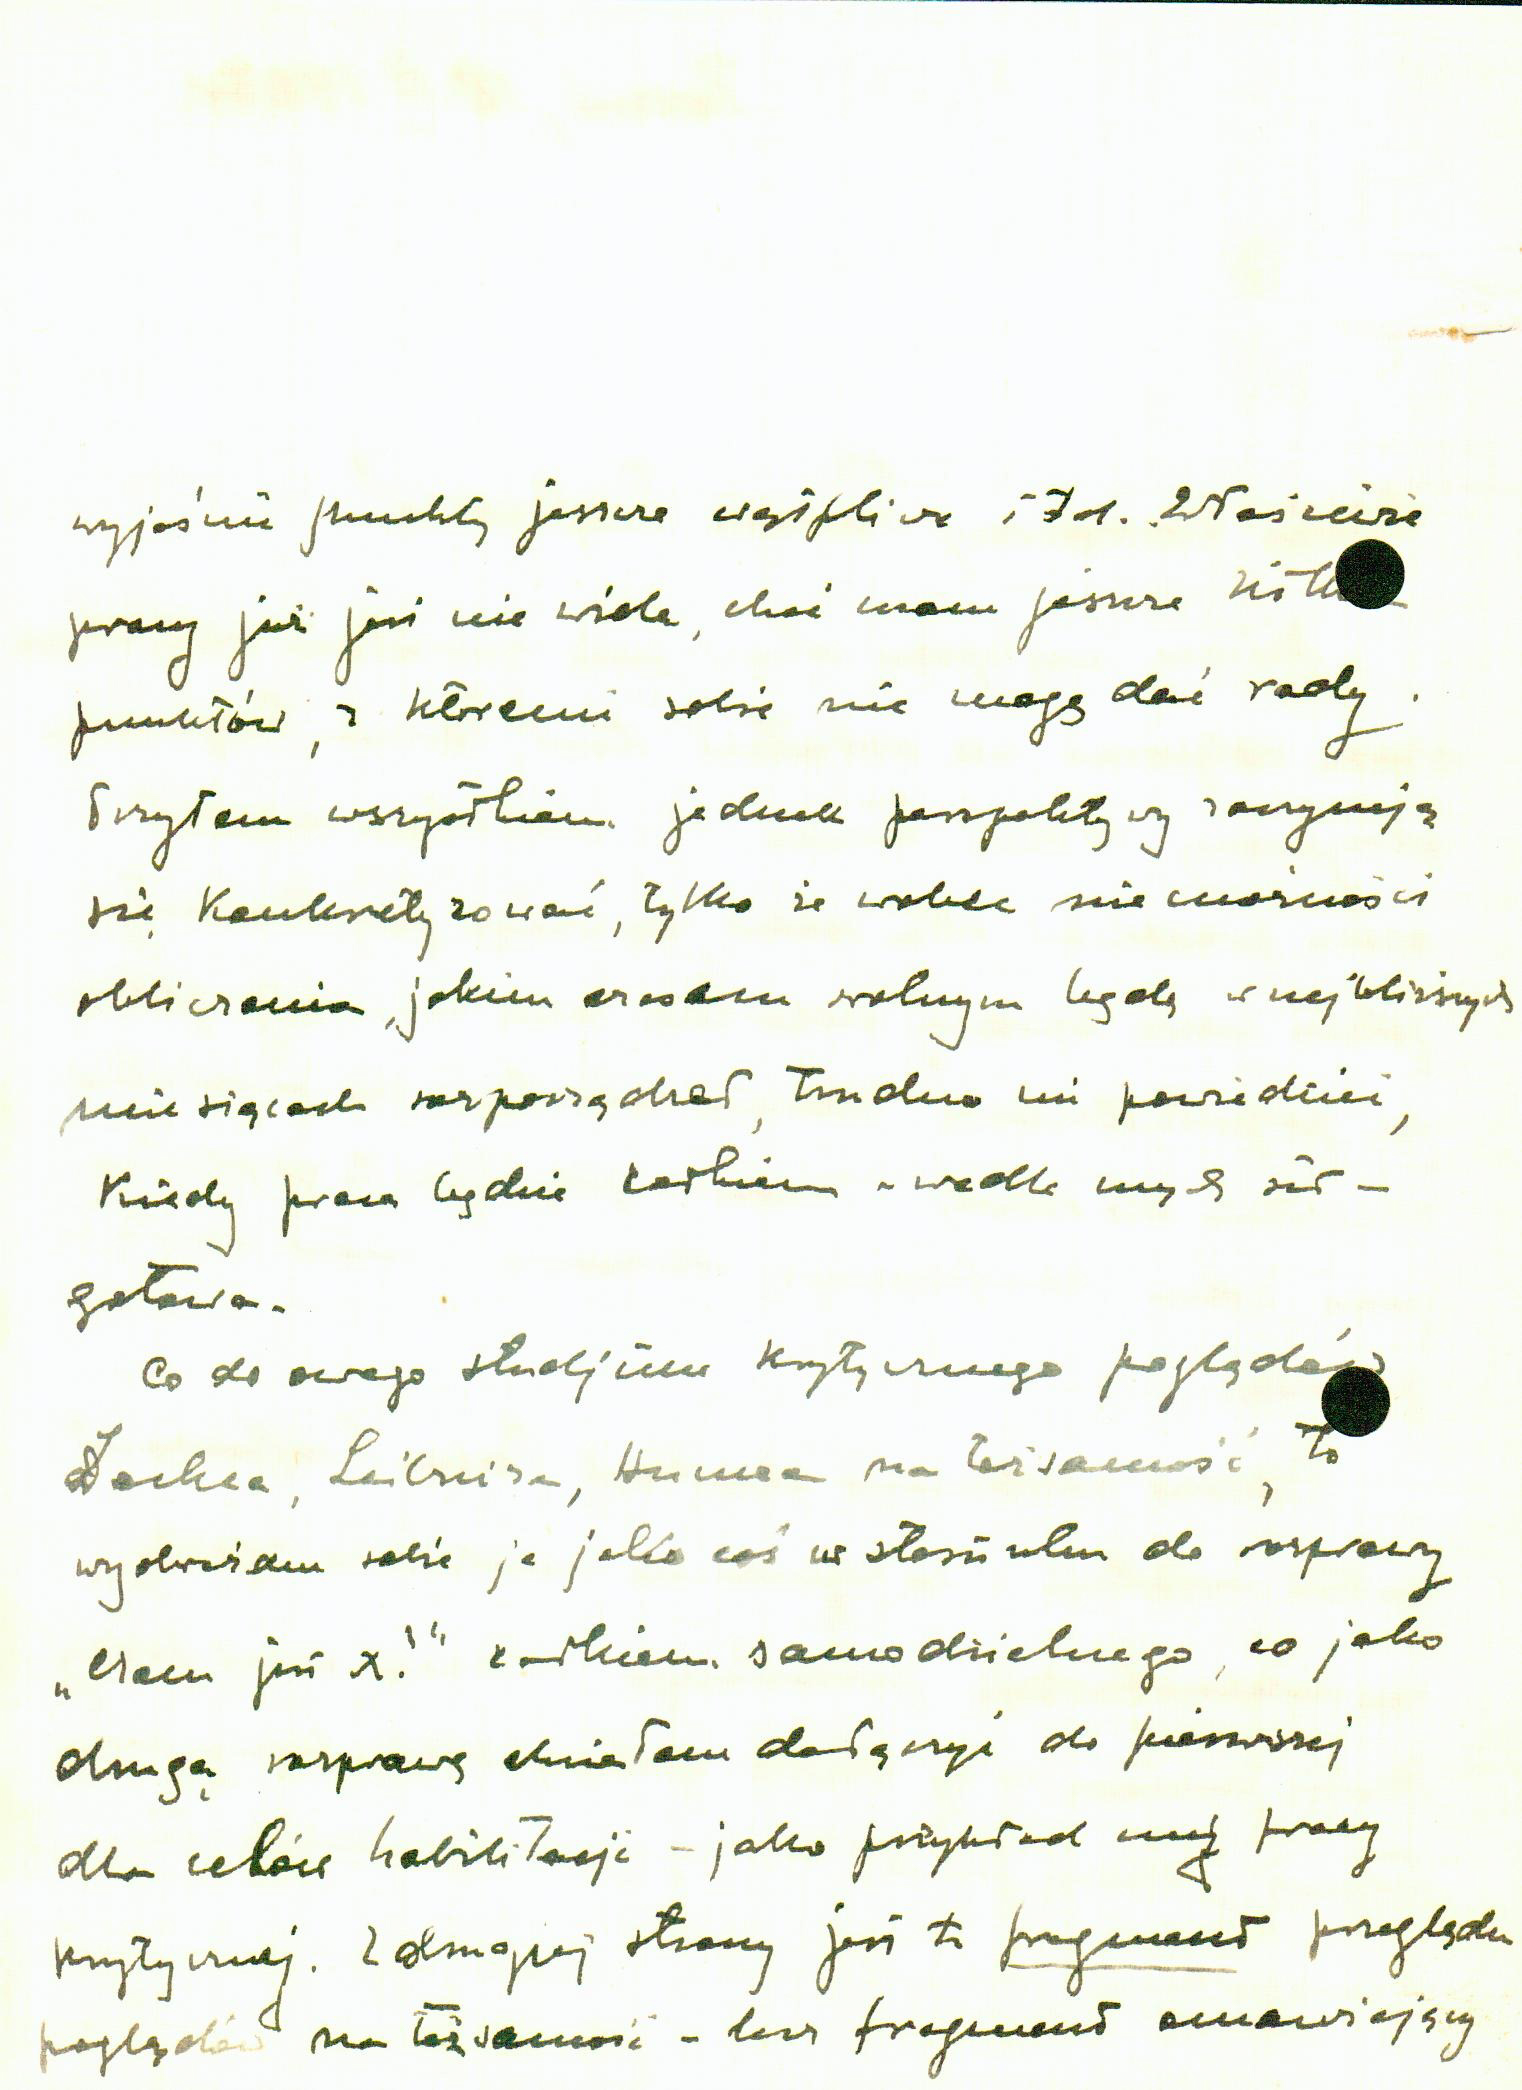 wyjaśnić punkty jeszcze wątpliwe i t.d. Właściwie
pracy już jest nie wiele, choć mam jeszcze kilka
punktów, z któremi sobie nie mogę dać rady.
Przytem wszystkiem jednak perspektywy zaczynają
się konkretyzować, tylko że wobec niemożności
obliczenia, jakim czasem wolnym będę w najbliższych
miesiącach rozporządzał, trudno mi powiedzieć,
kiedy praca będzie całkiem – wedle mych sił –
gotowa.
Co do owego studjum krytycznego poglądów
Locke'a, Leibniza, Humea na tożsamość, to
wyobrażam sobie je jako coś w stosunku do rozprawy
„Czem jest x?" całkiem samodzielnego, co jako
drugą rozprawę chciałem dołączyć do pierwszej
dla celów habilitacji – jako przykład mej pracy
krytycznej. Z drugiej strony jest to fragment przeglądu
poglądów na tożsamość – lecz fragment omawiający